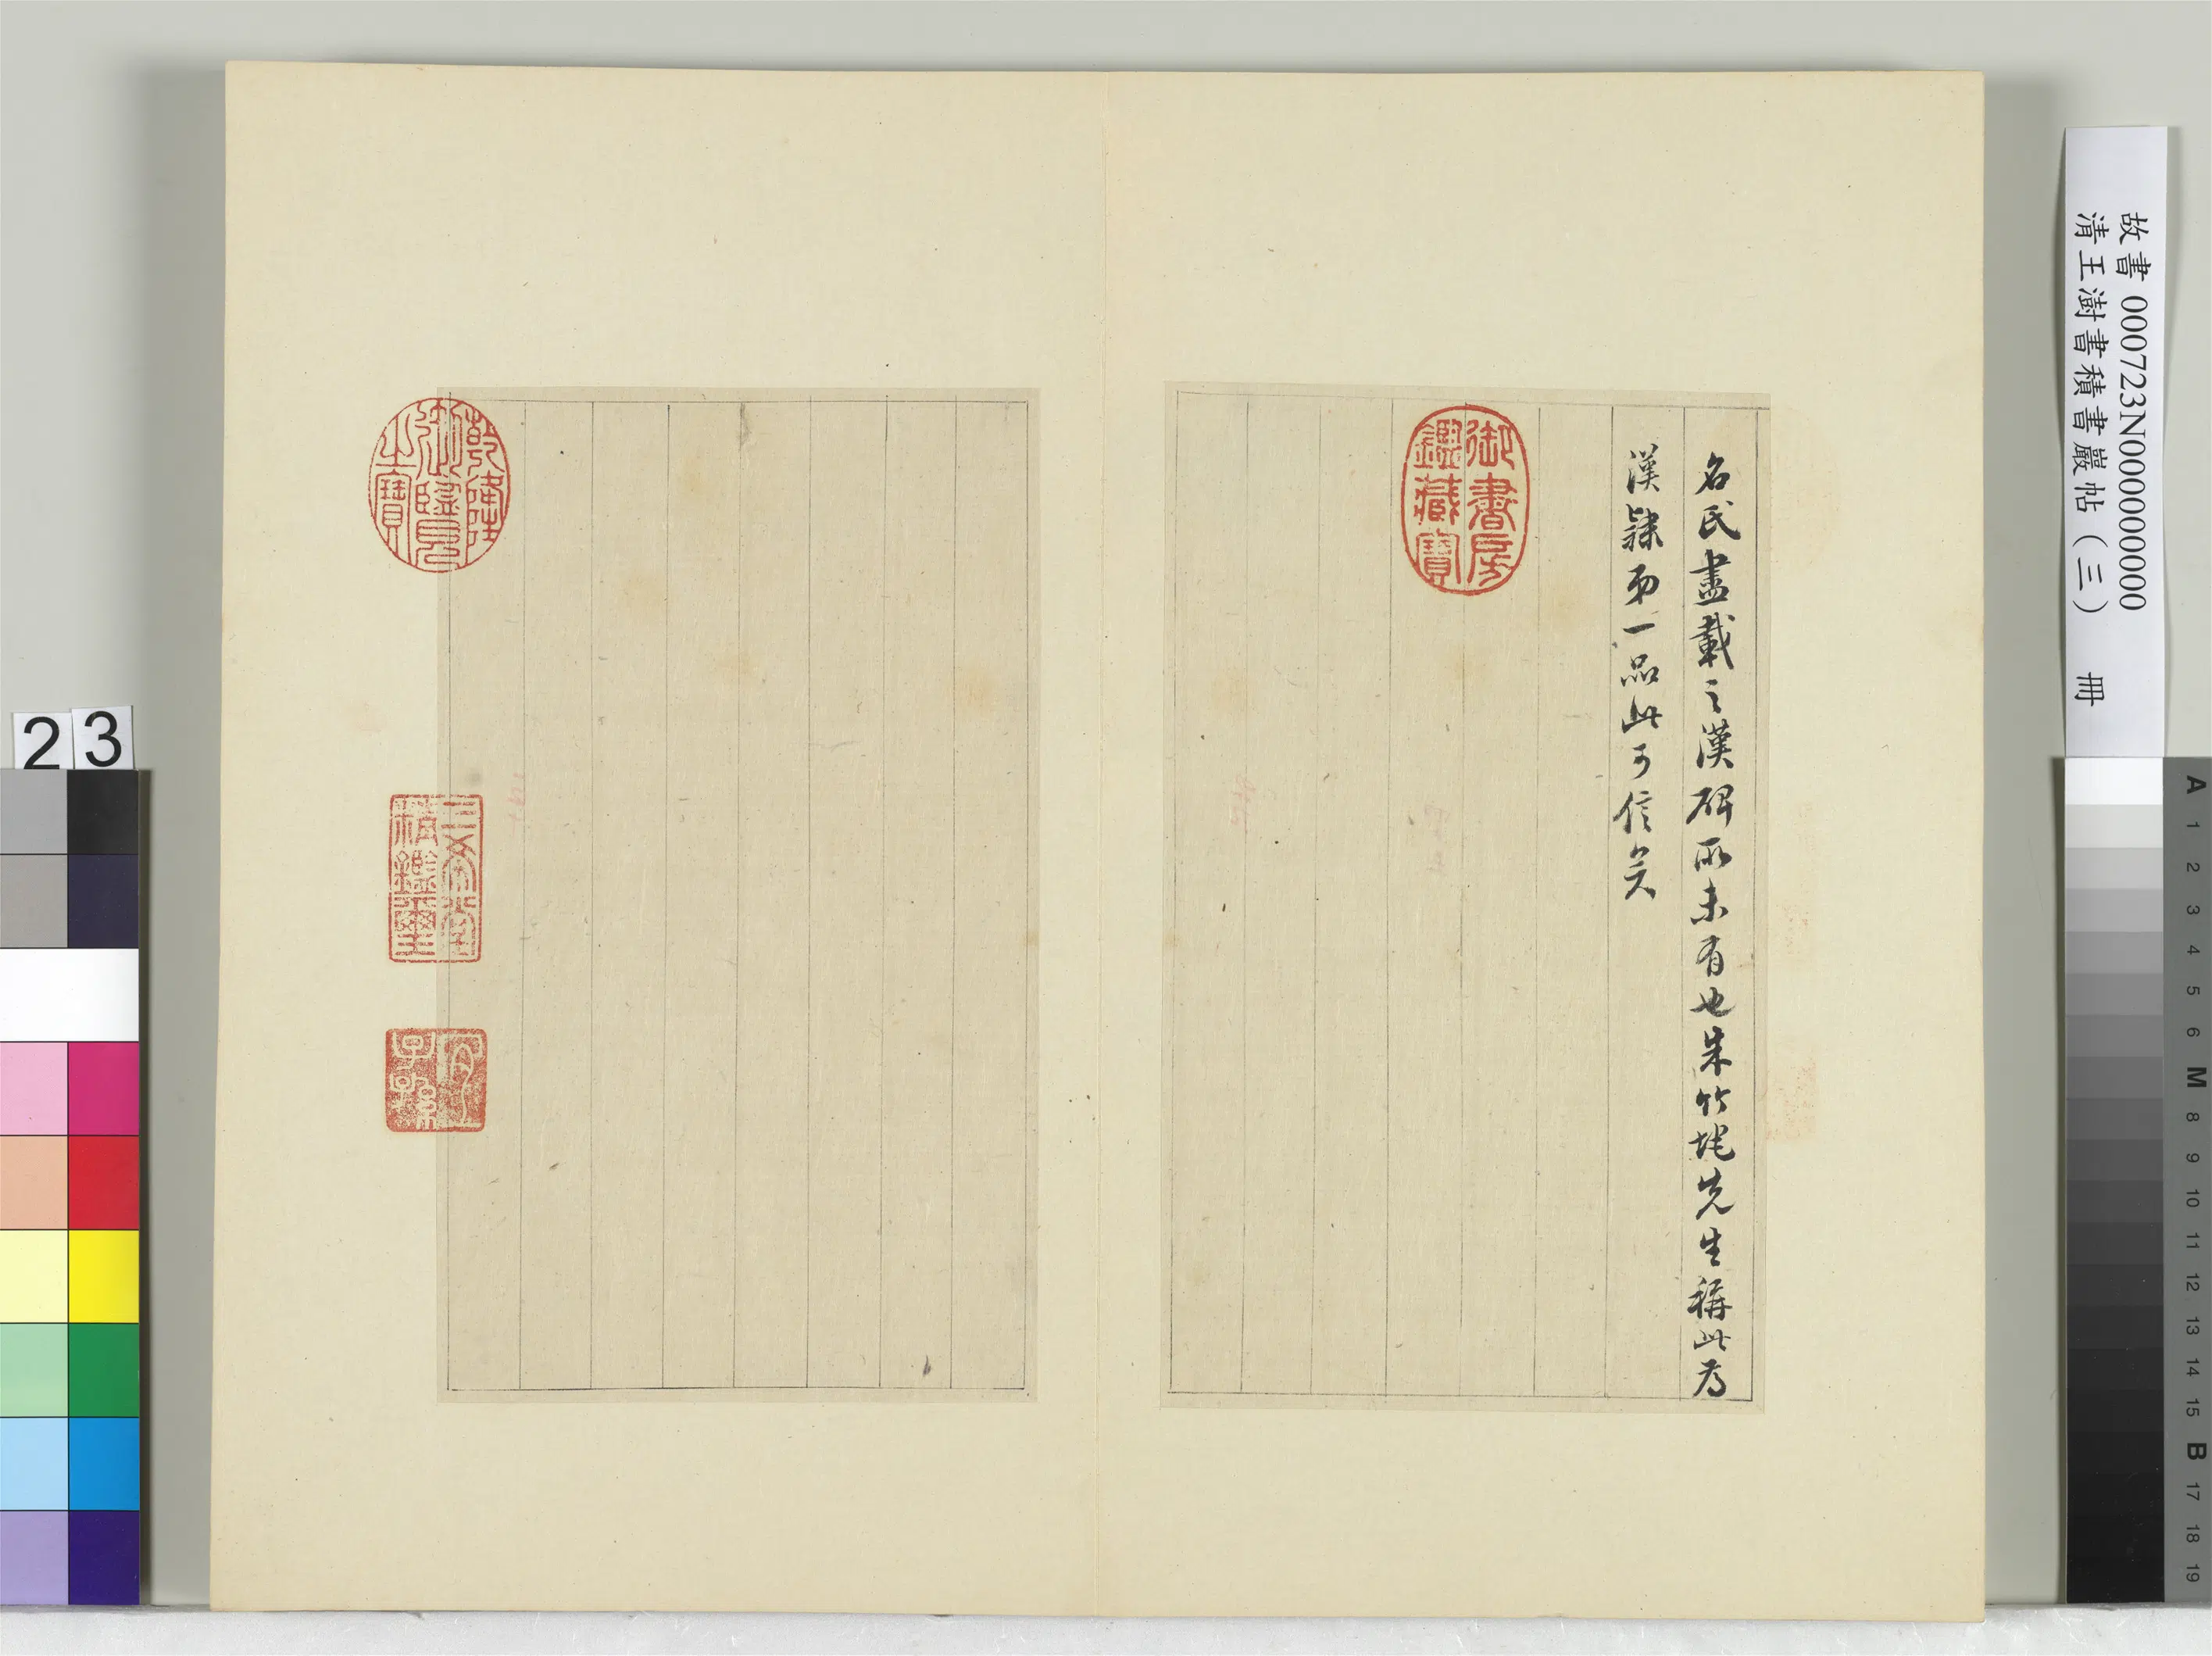 故書000723N000000000
清王澍書積書巖帖（三） 冊
名氏盡載之漢碑所未有也朱竹垞先生稱此為
漢隸第一品此可信矣
御書房
鑑藏寶
乾隆
御覽
之寶
三希堂
精鑑璽
宜
子孫
23
A
1
2
3
4
5
6
M
8
9
10
11
12
13
14
15
B
17
18
19